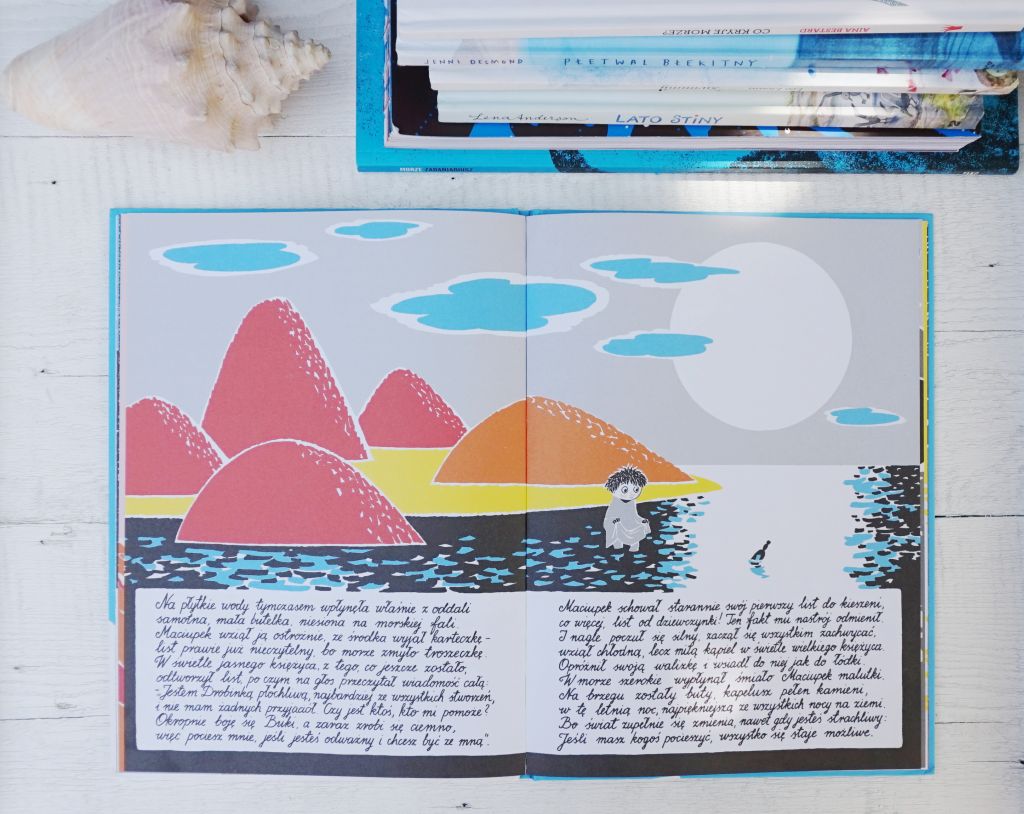 CO KRYJE MORZE? AINA BESTARD
JENNI DESMOND PŁETWAL BŁĘKITNY
Lena Anderson LATO STINY
MORZE
Na płytkie wody tymczasem wpłynęła właśnie z oddali
samotna, mała butelka, niesiona na morskiej fali.
Maciupek wziął ją ostrożnie, ze środka wyjął karteczkę –
list prawie już nieczytelny, bo morze zmyło troszeczkę.
W świetle jasnego księżyca, z tego, co jeszcze zostało,
odtworzył list, po czym na głos przeczytał wiadomość całą:
„Jestem Drobinka płochliwa, najbardziej ze wszystkich stworzeń,
i nie mam żadnych przyjaciół. Czy jest ktoś, kto mi pomoże?
Okropnie boję się Buki, a zaraz zrobi się ciemno,
więc pociesz mnie, jeśli jesteś odważny i chcesz być ze mną".
Maciupek schował starannie swój pierwszy list do kieszeni,
co więcej, list od dziewczynki! Ten fakt mu nastrój odmienił.
I nagle poczuł się silny, zaczął się wszystkim zachwycać,
wziął chłodną, lecz miłą kąpiel w świetle wielkiego księżyca.
Opróżnił swoją walizkę i wsiadł do niej jak do łódki.
W morze szerokie wypłynął śmiało Maciupek malutki.
Na brzegu zostały buty, kapelusz pełen kamieni,
w tę letnią noc, najpiękniejszą ze wszystkich nocy na ziemi.
Bo świat zupełnie się zmienia, nawet gdy jesteś strachliwy:
Jeśli masz kogoś pocieszyć, wszystko się staje możliwe.